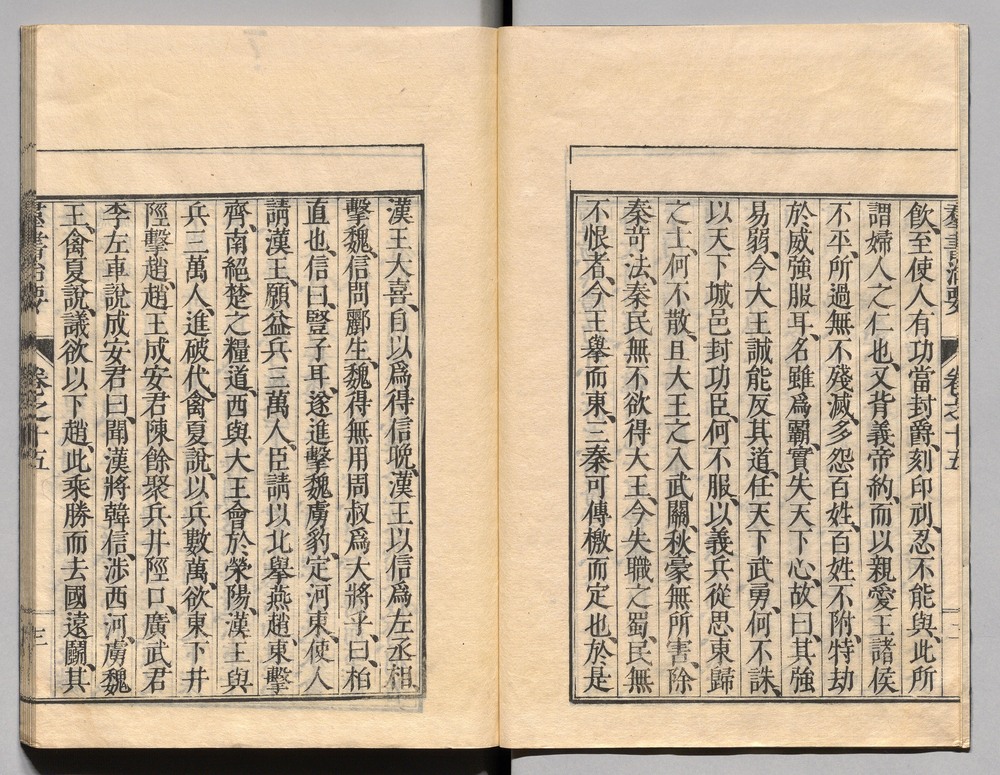 羣書治要 卷之十五 二
飲、至使人有功當封爵、刻印刓、忍不能與、此所
謂婦人之仁也、又背義帝約、而以親愛王諸侯
不平、所過無不殘滅、多怨百姓、百姓不附、特劫
於威強服耳、名雖爲霸、實失天下心、故曰、其強
易弱、今大王誠能反其道、任天下武勇、何不誅、
以天下城邑封功臣、何不服、以義兵從思東歸
之士、何不散、且大王之入武關、秋豪無所害、除
秦苛法、秦民無不欲得大王、今失職之蜀、民無
不恨者、今王舉而東、三秦可傳檄而定也、於是
漢王大喜、自以爲得信晚、漢王以信爲左丞相
擊魏、信問酈生、魏得無用周叔爲大將乎、曰、柏
直也、信曰、豎子耳、遂進擊魏虜豹、定河東、使人
請漢王、願益兵三萬人、臣請以北舉燕趙、東擊
齊、南絕楚之糧道、西與大王會於滎陽、漢王與
兵三萬人、進破代、禽夏說、以兵數萬、欲東下井
陘擊趙、趙王成安君陳餘聚兵井陘口、廣武君
李左車說成安君曰、聞漢將韓信、涉西河、虜魏
王、禽夏說、議欲以下趙、此乘勝而去國遠鬭、其
羣書治要 卷之十五 三